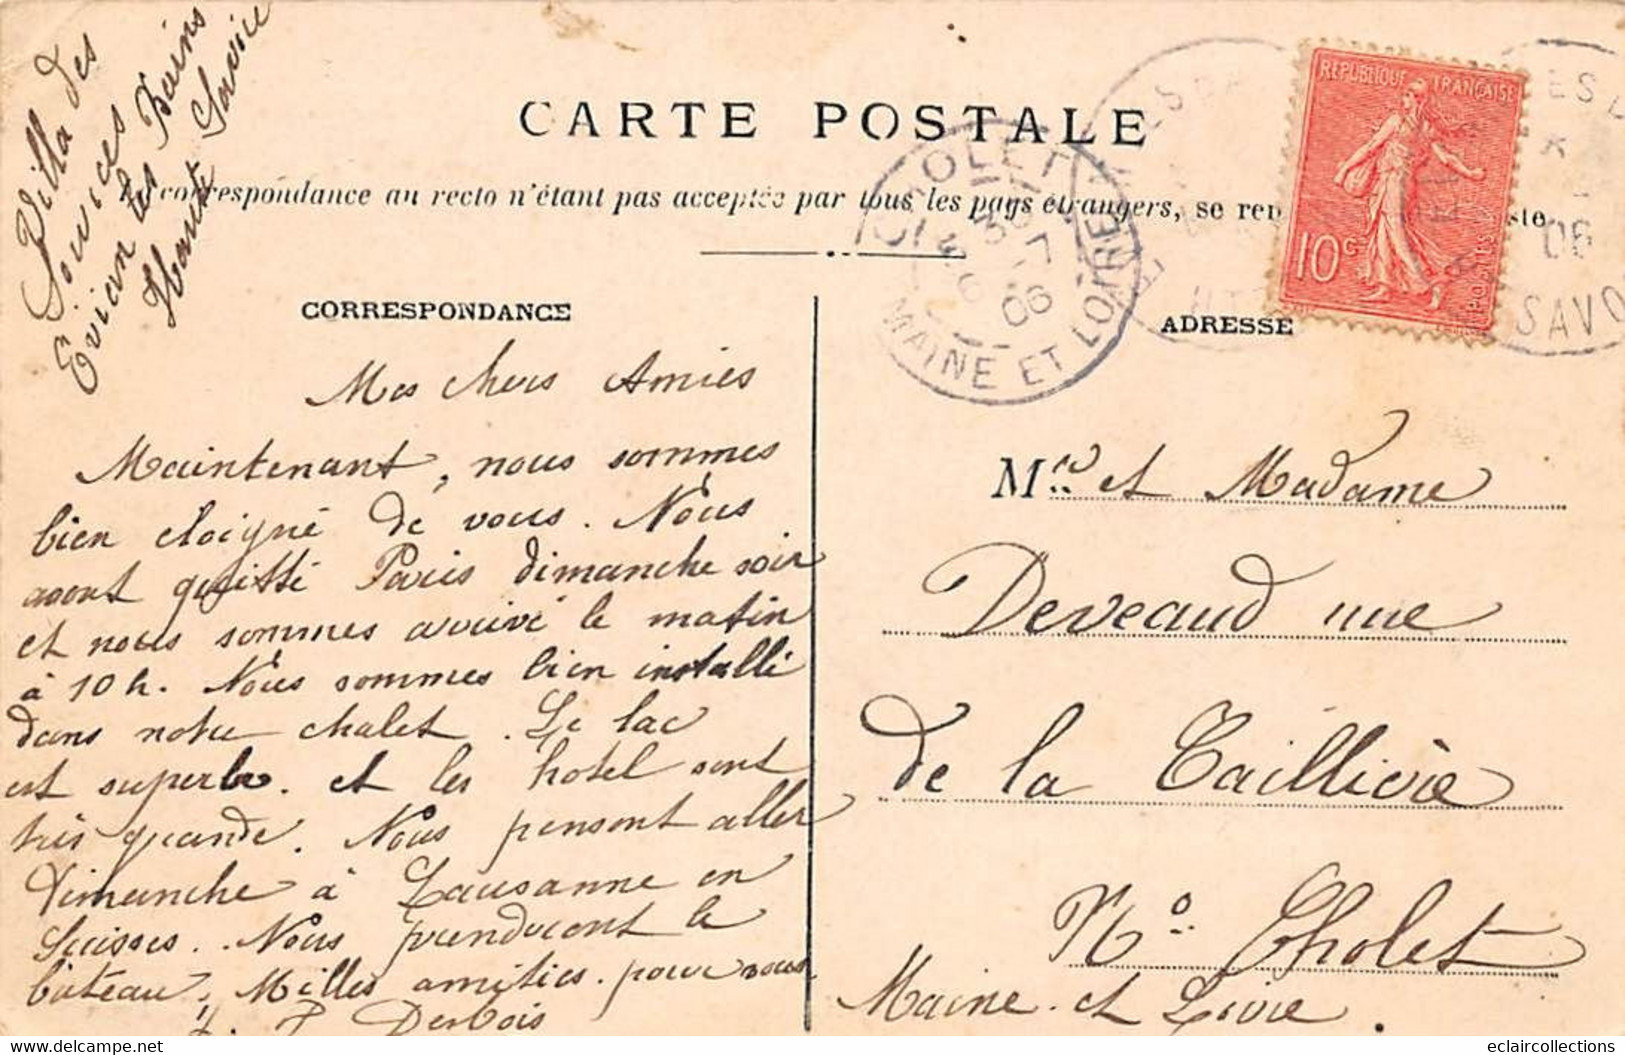 Villa des
Sources
Evian les Bains
Haute Savoie
CARTE POSTALE
La correspondance au recto n'étant pas acceptée par tous les pays étrangers, se ren
REPUBLIQUE FRANÇAISE
10 c
POSTES
CHOLET
30
7
06
MAINE ET LOIRE
06
SAVO
CORRESPONDANCE
ADRESSE
Mes chers Amies
Maintenant, nous sommes
bien eloigné de vous. Nous
avont quitté Paris dimanche soir
et nous sommes arrivé le matin
à 10 h. Nous sommes bien installé
dans notre chalet. Le lac
est superbe. et les hotel sont
très grande. Nous pensont aller
Dimanche à Lausanne en
Suisses. Nous prenderont le
bâteau, Milles amities. pour vous
Desbois
Mr. et Madame
Deveaud rue
de la Taillivie
No. Cholet
Maine et Loire.
eclaircollections.com